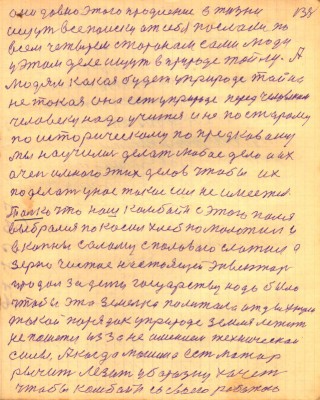 они довно этого продления в жизни 138
ищут все поиски от себя послали по
всем четырем сторонам сами люди
у этом деле ищут в природе тайну. А
людям какая будет у природе тайна
не такая она есть у природе перед человеком
человеку надо учится и не по старому
по историческому по предковому
мы научили делать любое дело а их
очень много этих делов чтобы их
поделать у нас такое сил не имеется
Только что наш комбайн с этого поля
выбрался покосил хлеб помолотил и
в копны солому с половою сложил а
зерно чистое настоящей
продал за день государству надо было
чтобы эта земелька
такой порядок у природе земля лежит
не пахота из за не имения технической
силы. А когда машина есть мотор
рычит лезит у борозну хочет
чтобы комбайн со своего работою